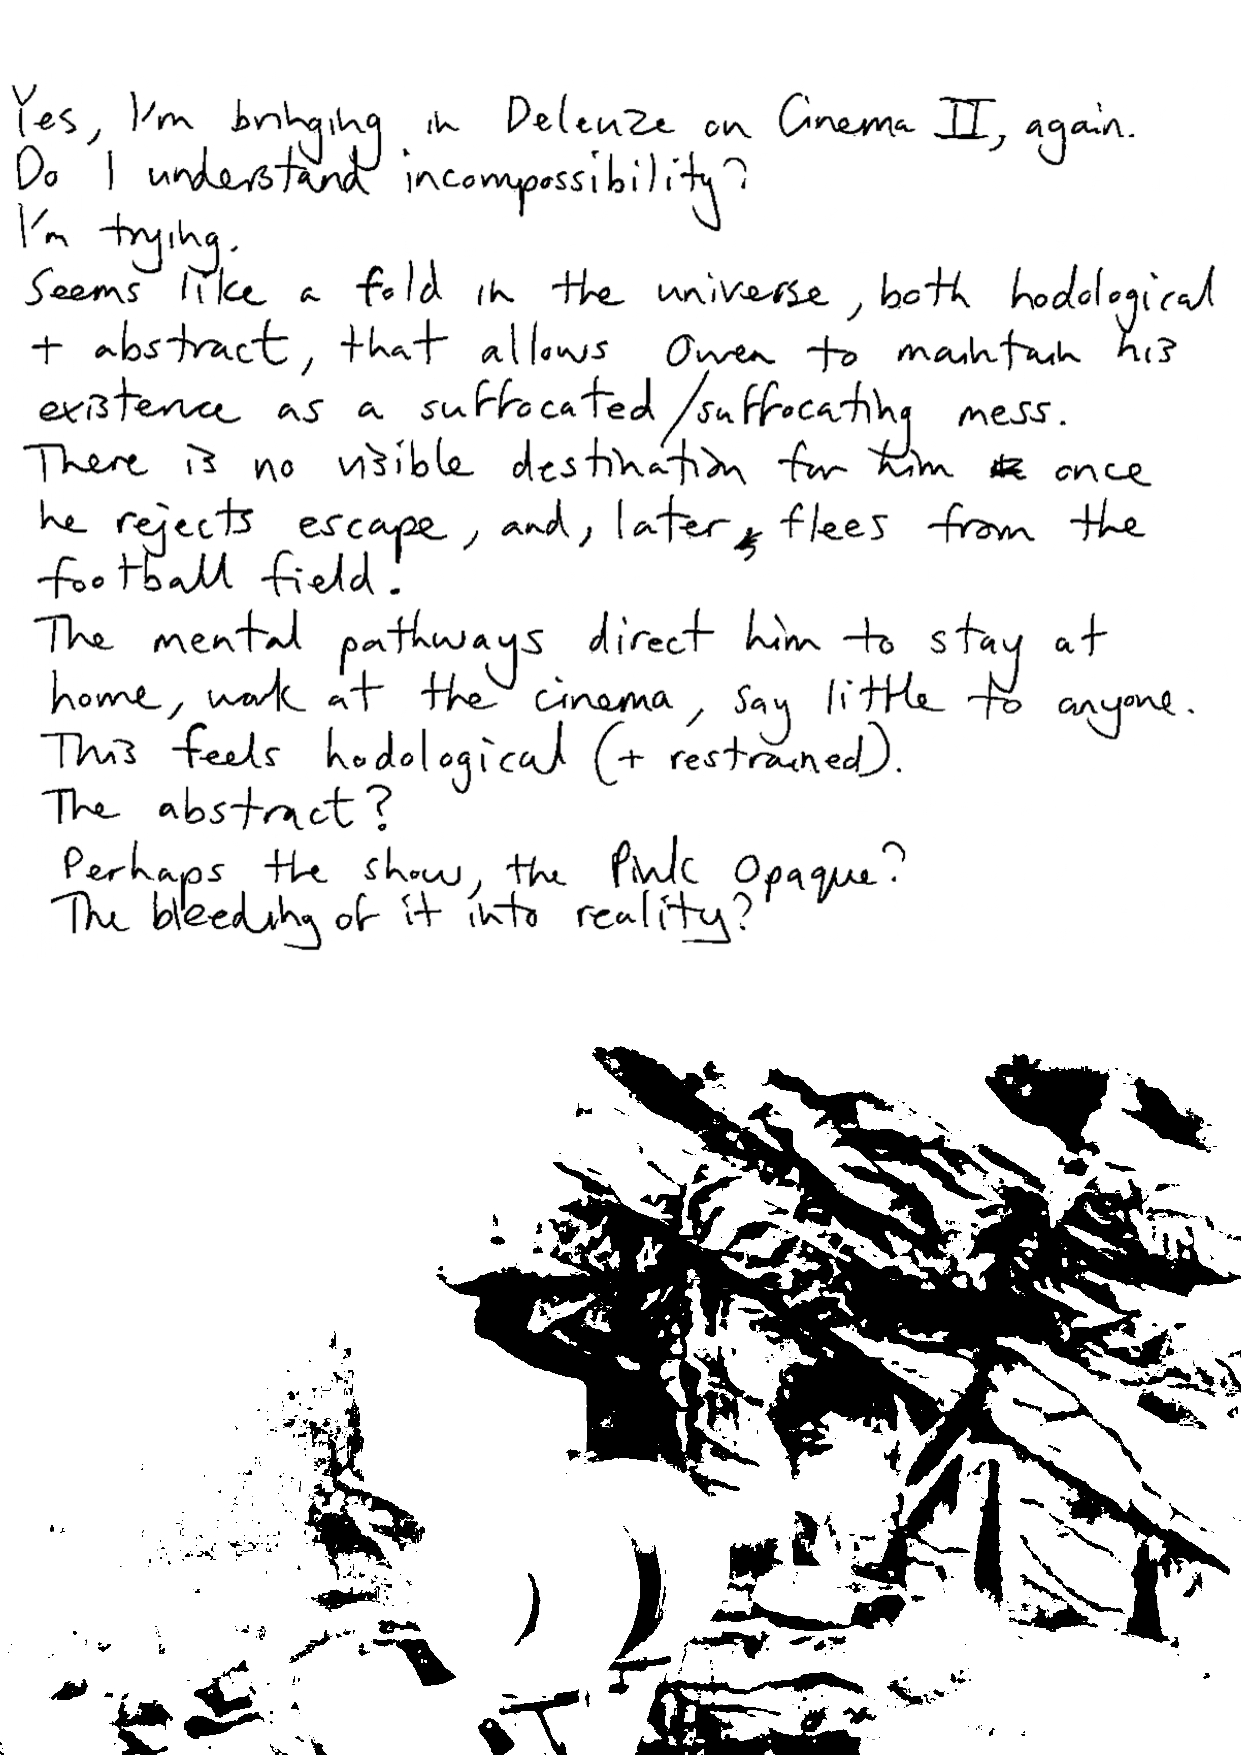 Yes, I'm bringing in Deleuze on Cinema II, again.
Do I understand incompossibility?
I'm trying.
Seems like a fold in the universe, both hodological
+ abstract, that allows Owen to maintain his
existence as a suffocated/suffocating mess.
There is no visible destination for him once
he rejects escape, and, later, flees from the
football field.
The mental pathways direct him to stay at
home, work at the cinema, say little to anyone.
This feels hodological (+ restrained).
The abstract?
Perhaps the show, the Pink Opaque?
The bleeding of it into reality?